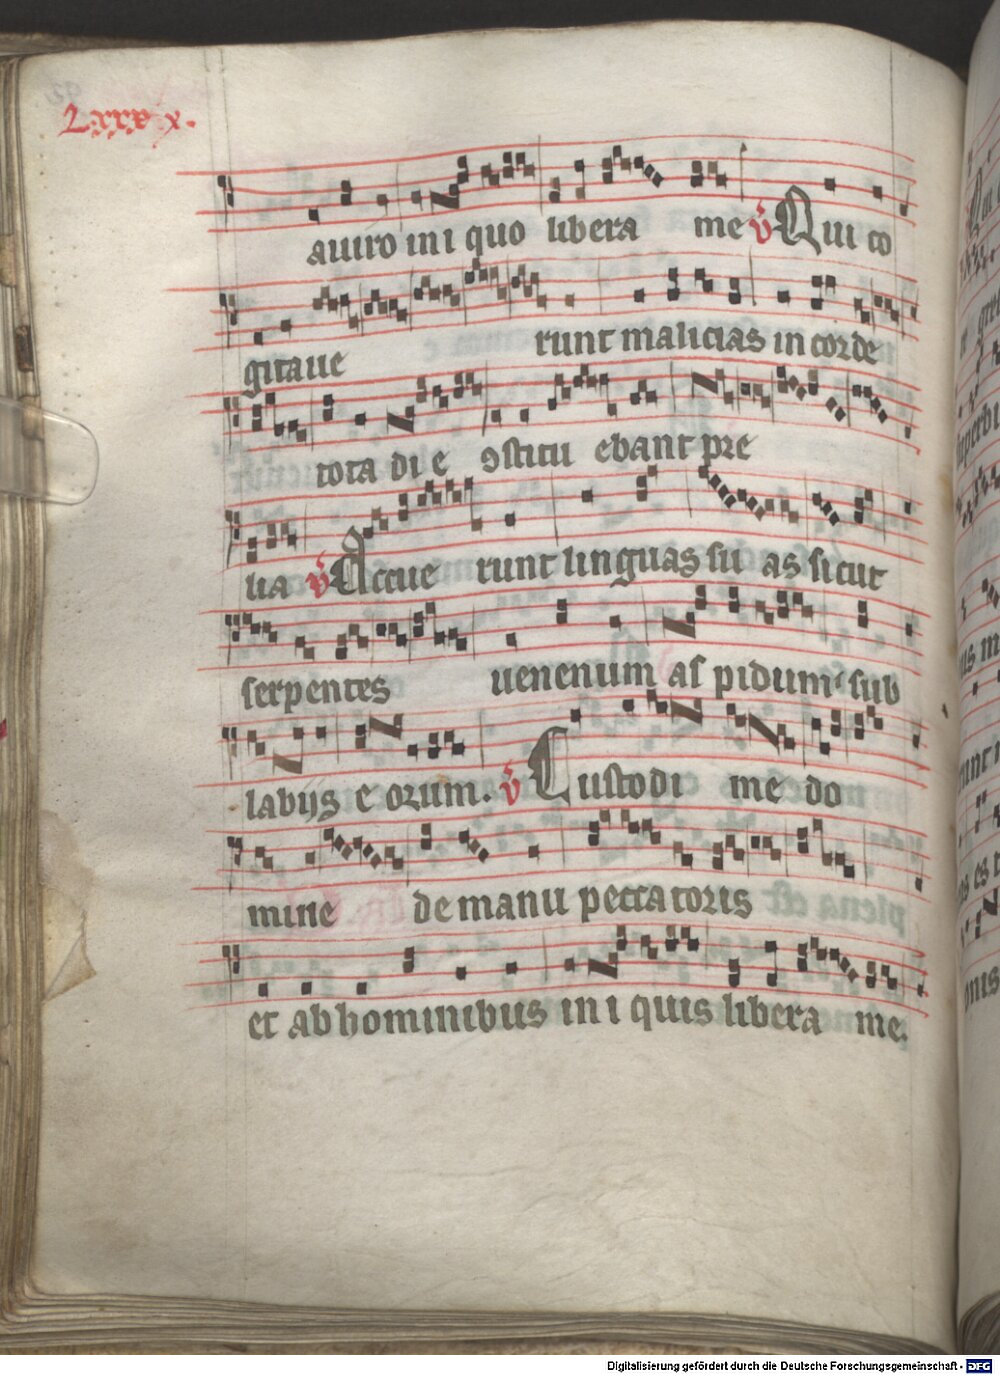 Lxxxx.
a uiro in i quo libera me v Qui co
gitaue runt malicias in corde
tota di e ꝯstitu ebant pre
lia v Accue runt linguas su as sicut
serpentes uenenum as pidum sub
labijs e orum. v Custodi me do
mine de manu peccatoris
et ab hominibus in i quis libera me.
Digitalisierung gefördert durch die Deutsche Forschungsgemeinschaft - DFG